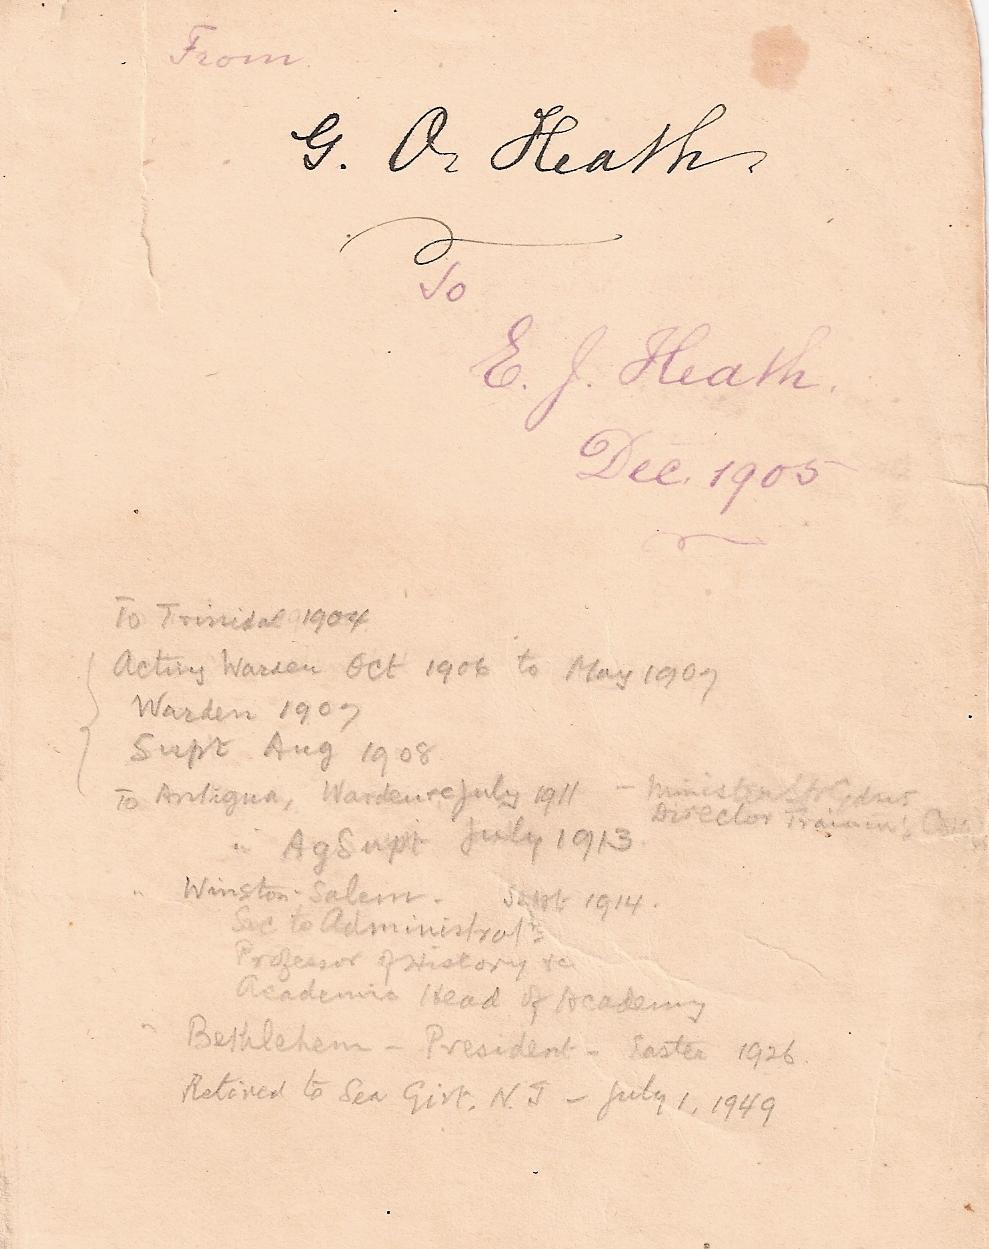 From
G. O. Heath
To
E. J. Heath.
Dec. 1905
To Trinidad 1904
Acting Warden Oct 1906 to May 1907
Warden 1907
Supt Aug 1908
To Antigua, Warden July 1911 - Minister
Director
" Ag Supt July 1913.
" Winston-Salem. Sept 1914.
Sec to Administrat
Professor of History &c
Academic Head of Academy
" Bethlehem - President - Easter 1926.
Retired to Sea Girt. N.J - July 1, 1949